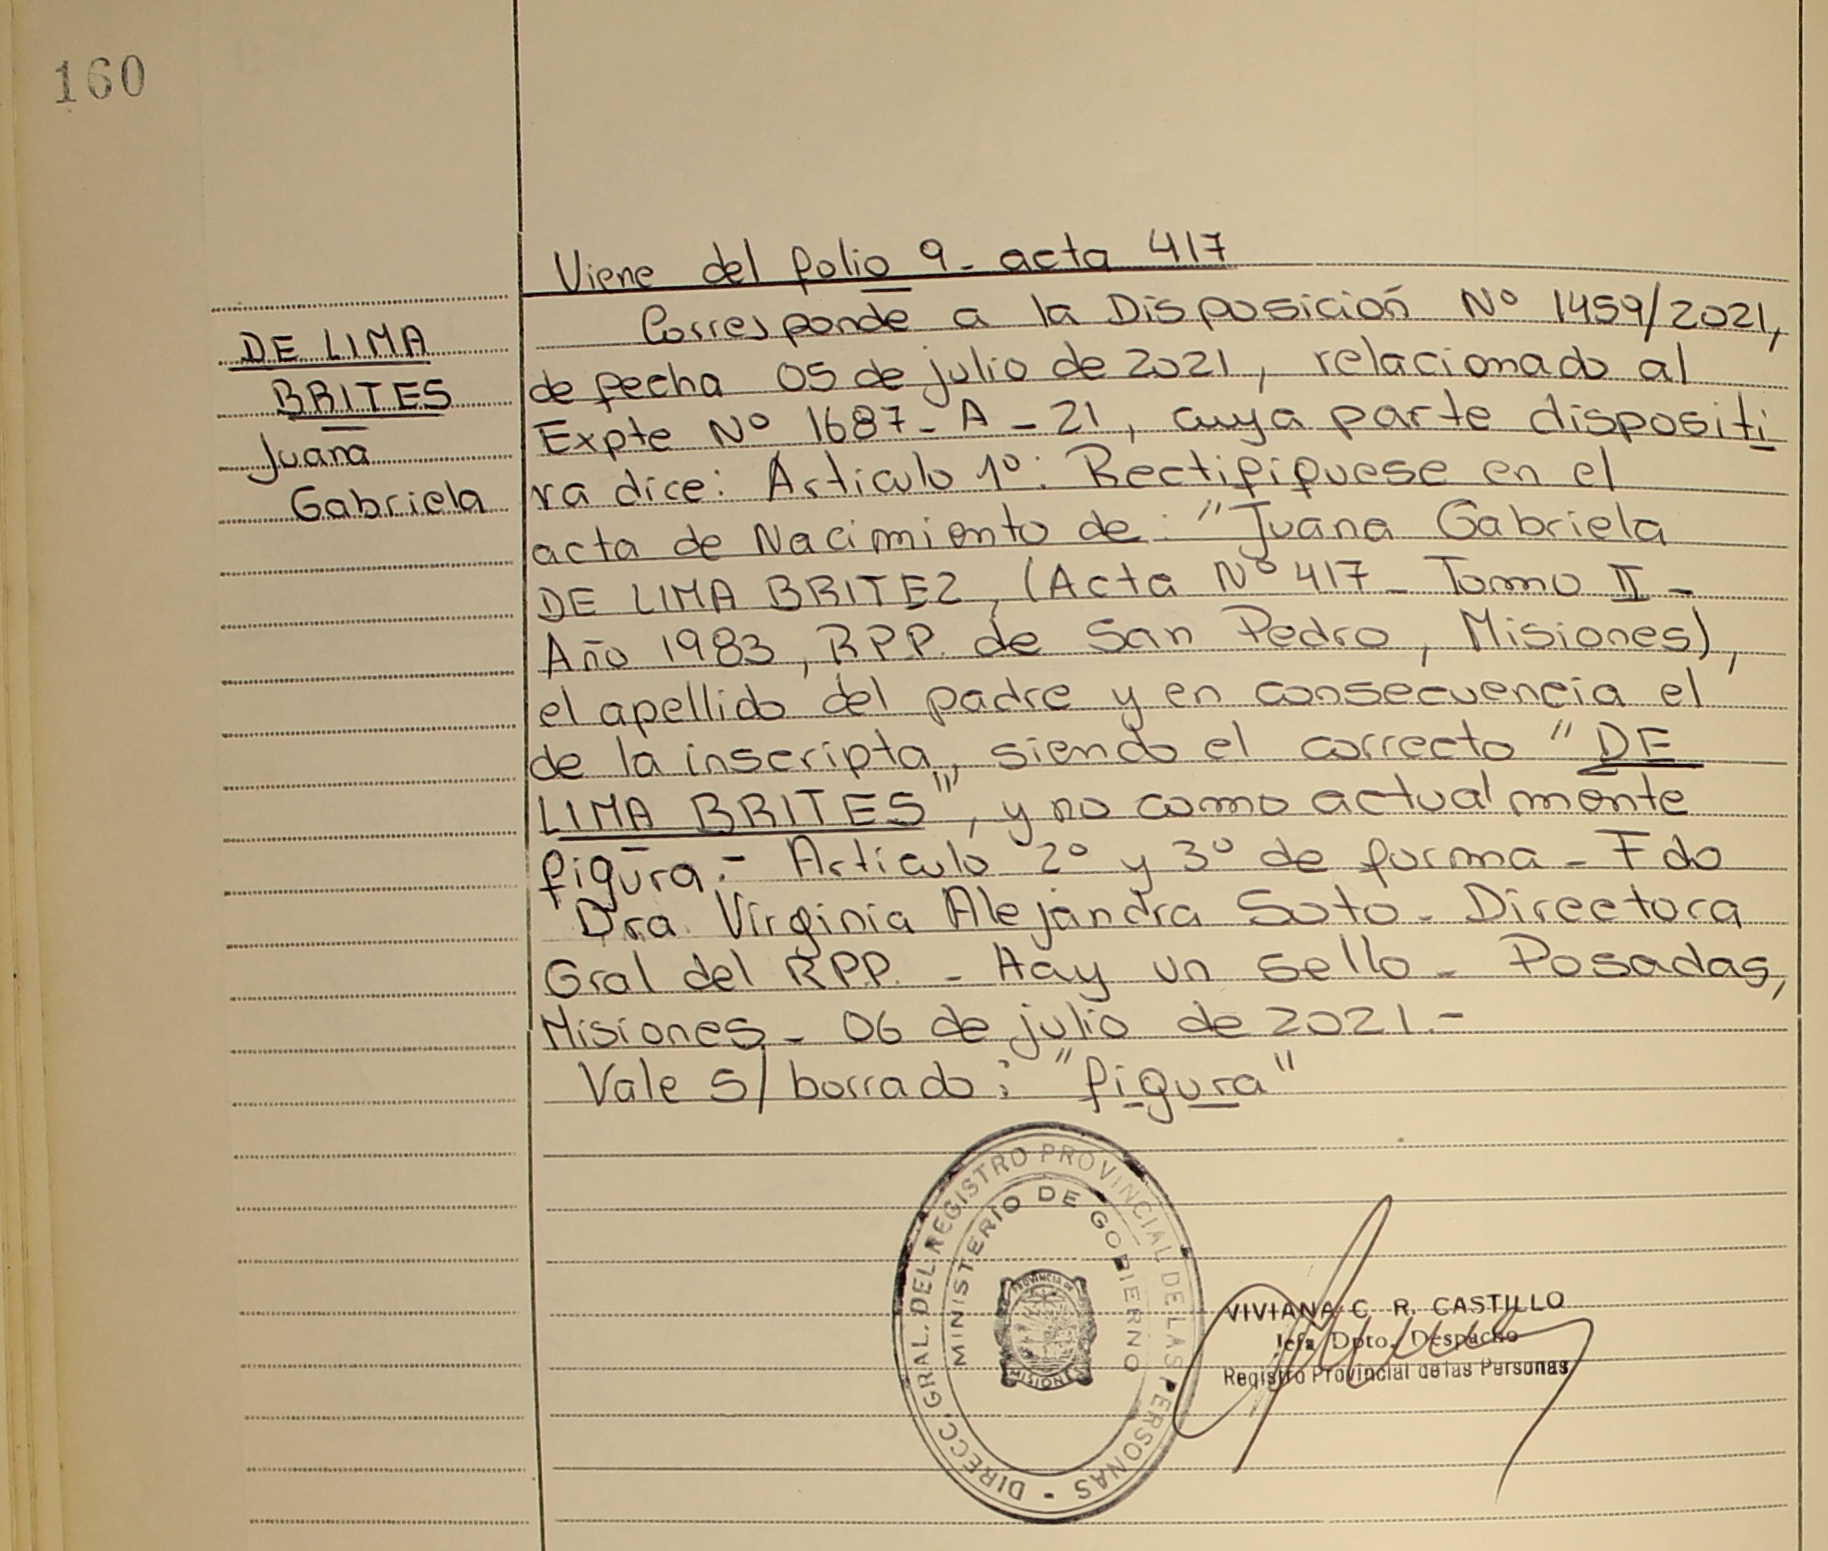 160
DE LIMA
BRITES
Juana
Gabriela
Viene del folio 9- acta 417
Corresponde a la Disposición Nº 1459/2021,
de fecha 05 de julio de 2021, relacionado al
Expte Nº 1687-A-21, cuya parte dispositi
va dice: Articulo 1º: Rectififuese en el
acta de Nacimiento de: "Juana Gabriela
DE LIMA BRITEZ, (Acta Nº 417- Tomo II-
Año 1983, R.P.P. de San Pedro, Misiones),
el apellido del padre y en consecuencia el
de la inscripta, siendo el correcto "DE
LIMA BRITES", y no como actualmente
figura.- Artículo 2º y 3º de forma- Fdo
Dra. Virginia Alejandra Soto- Directora
Gral del R.P.P. - Hay un sello- Posadas,
Misiones- 06 de julio de 2021.-
Vale s/ borrado: "figura"
DIRECC. GRAL. DEL REGISTRO PROVINCIAL DE LAS PERSONAS -
MINISTERIO DE GOBIERNO
PROVINCIA DE
MISIONES
VIVIANA C. R. CASTILLO
Jefa Dpto. Despacho
Registro Provincial de las Personas